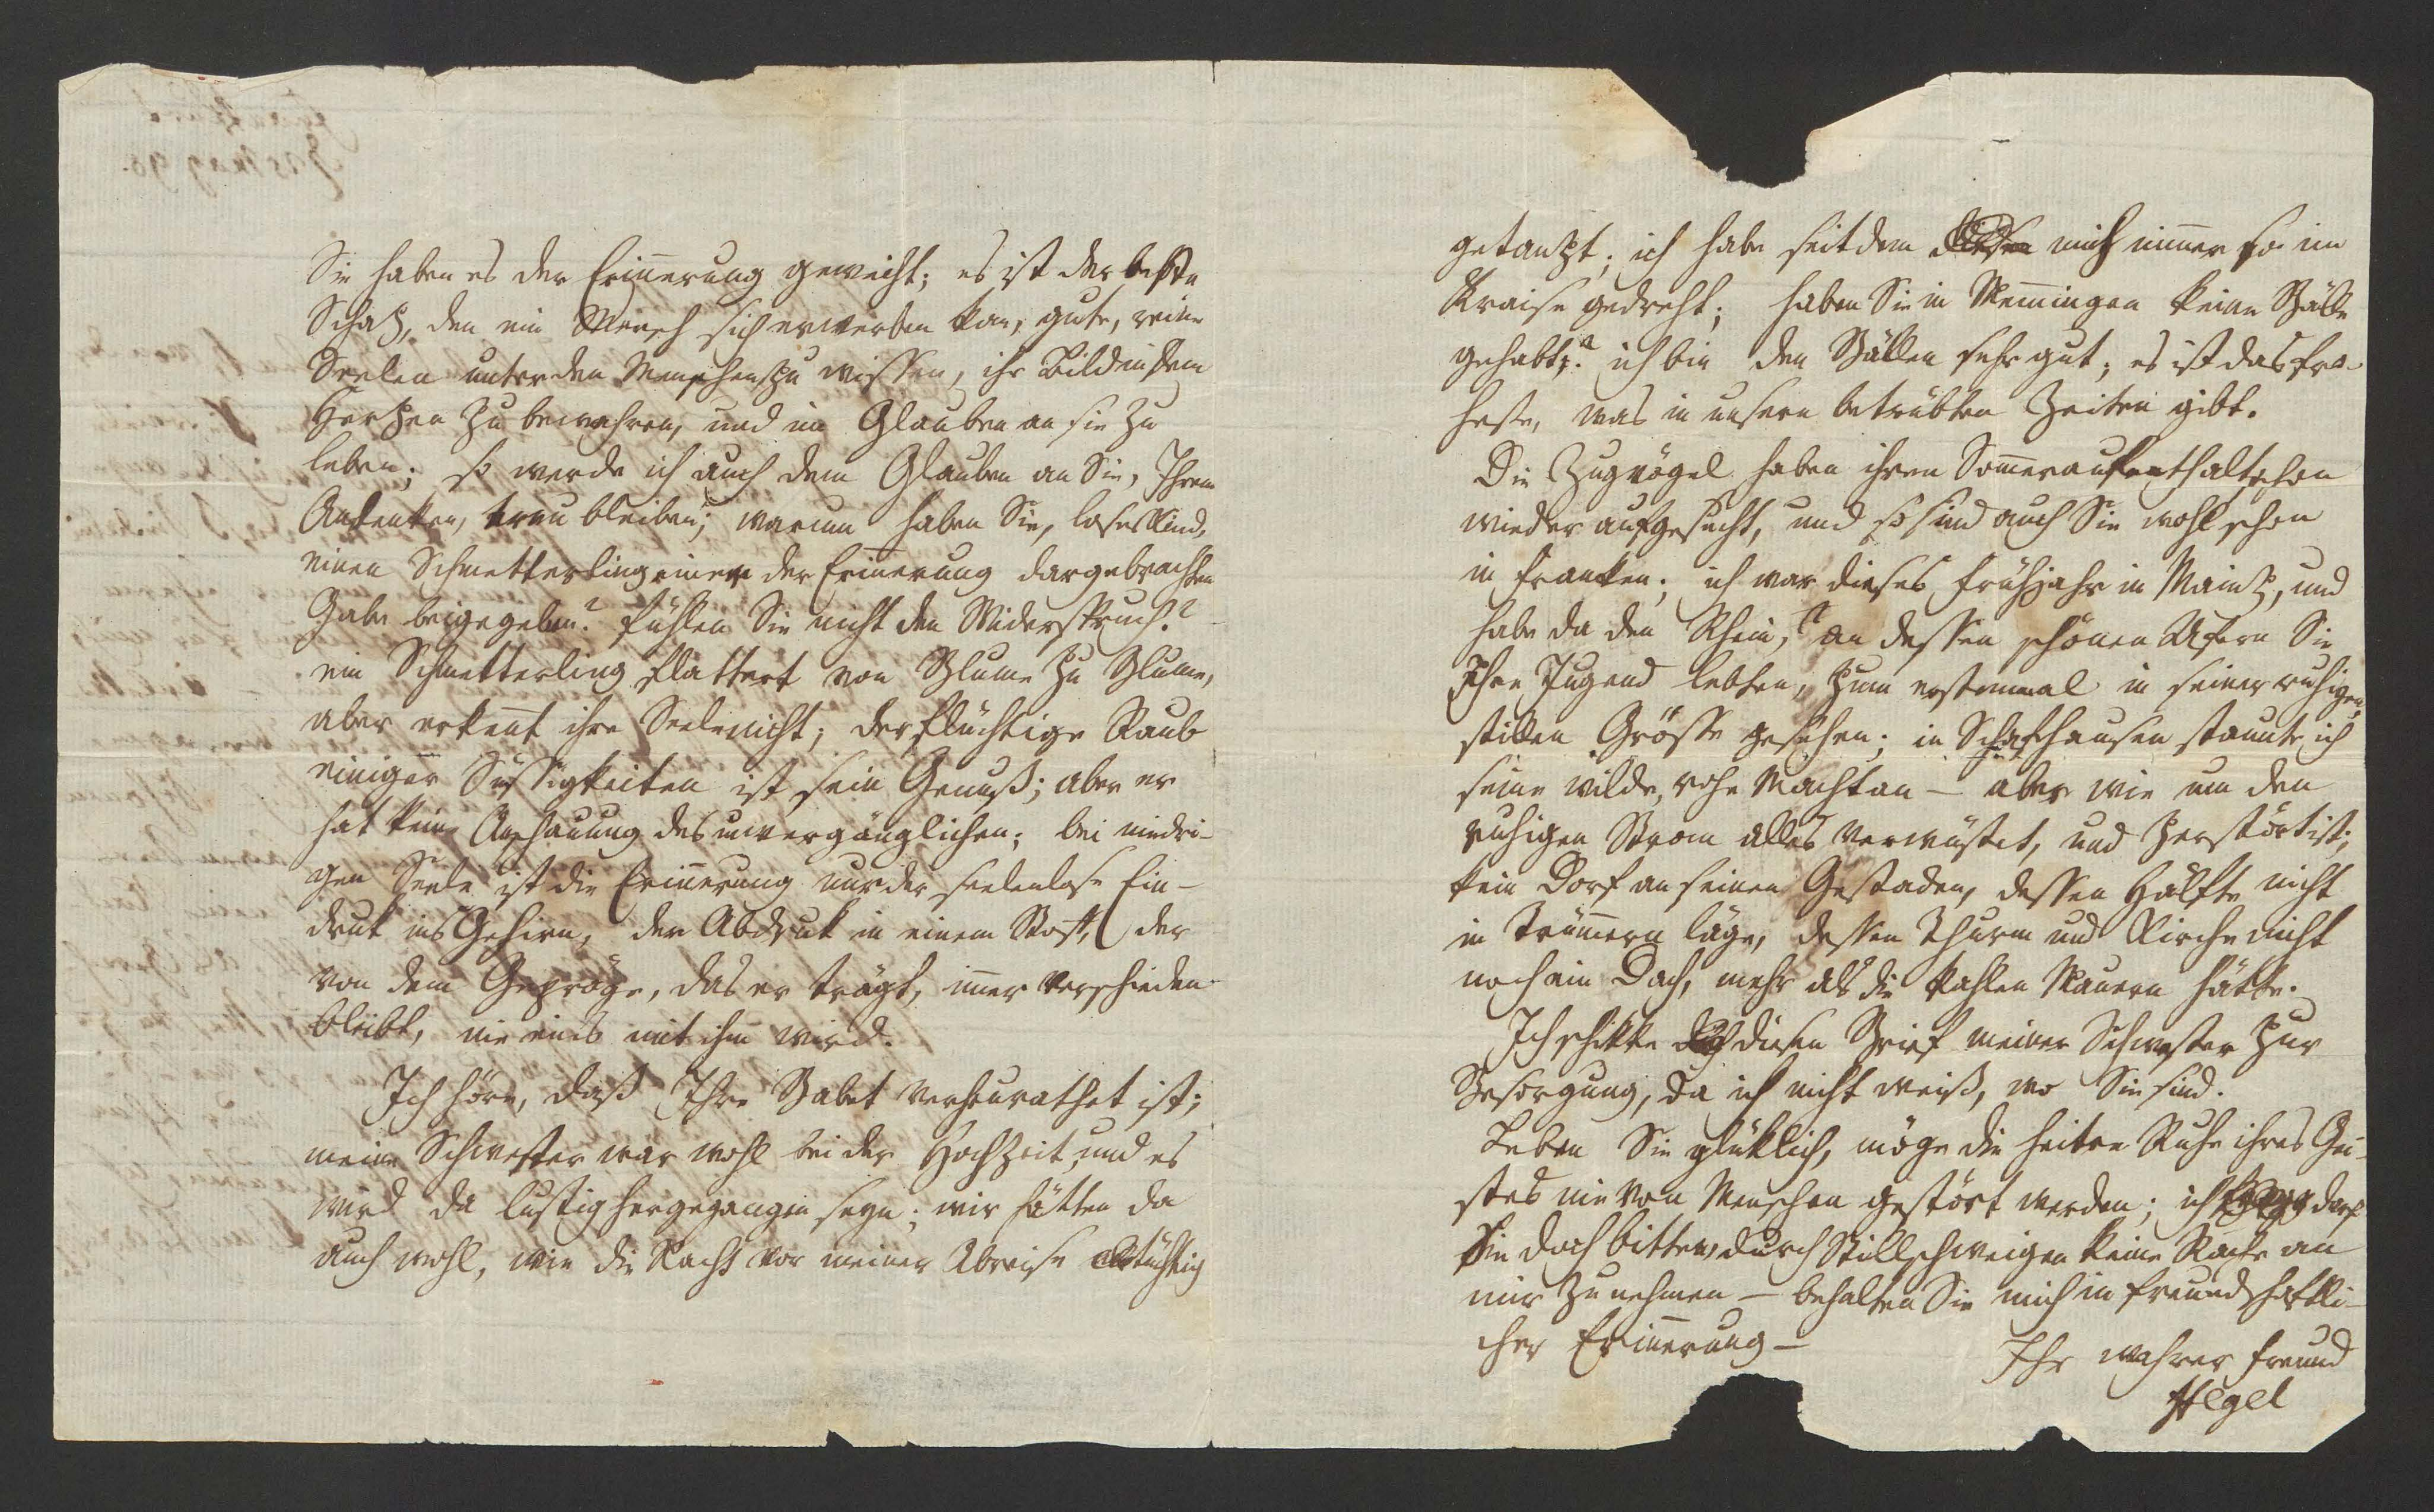 Sie haben es der Erinerung geweiht; es ist der beste
Schaz, den ein Mensch sich erwerben kan, gute, reine
Seelen unter den Menschen zu wissen, ihr Bild in dem
Herzen zu bewahren, und im Glauben an sie zu
leben; so werde ich auch dem Glauben an Sie, Ihrem
Andenken, treu bleiben; warum haben Sie, loses Kind,
einen Schmetterling einer der Erinerung dargebrachten
Gabe beigegeben? fühlen Sie nicht den Widerspruch?
ein Schmetterling flattert von Blume zu Blume,
aber erkent ihre Seele nicht; der flüchtige Raub
einiger Süssigkeiten ist sein Genuß; aber er
hat keine Anschauung des unvergänglichen; bei niedri-
gen Seele ist die Erinerung nur der seelenlose Ein-
druk ins Gehirn, der Abdruk in einem Stoff, der
von dem Gepräge, das er trägt, imer verschieden
bleibt, nie eines mit ihm wird.
Ich höre, daß Ihre Babet verheurathet ist;
meine Schwester war wohl bei der Hochzeit, und es
wird da lustig hergegangen seyn; wir hätten da
auch wohl, wie die Nacht vor meiner Abreise tüchtig
getanzt; ich habe seitdem mich immer so im
Kraise gedreht; haben Sie in Memingen keine Bälle
gehabt? ich bin den Bällen sehr gut; es ist das fro-
heste, was in unsern betrübten Zeiten gibt.
Die Zugvögel haben ihren Someraufenthalt schon
wieder aufgesucht, und so sind auch Sie wohl schon
in Franken; ich war dieses Frühjahr in Mainz, und
habe da den Rhein, an dessen schönen Ufern Sie
Ihre Jugend lebten, zum erstenmal in seiner ruhigen,
stillen Grösse gesehen; in Schafhausen staunte ich
seine wilde, rohe Macht an – aber wie um den
ruhigen Strom alles verwüstet, und zerstört ist;
kein Dorf an seinen Gestaden, dessen Hälfte nicht
in Trümern läge, dessen Thurm und Kirche nicht
noch ein Dach, mehr als die kahlen Mauern hätte.
Ich schikke diesen Brief meiner Schwester zur
Besorgung, da ich nicht weiß, wo Sie sind.
Leben Sie glüklich, möge die heitre Ruhe ihres Gei-
stes nie von Menschen gestört werden; ich darf
Sie doch bitten, durch Stillschweigen keine Rache an
mir zu nehmen – behalten Sie mich in freundschaftli-
cher Erinerung –
Ihr wahrer Freund
Hegel